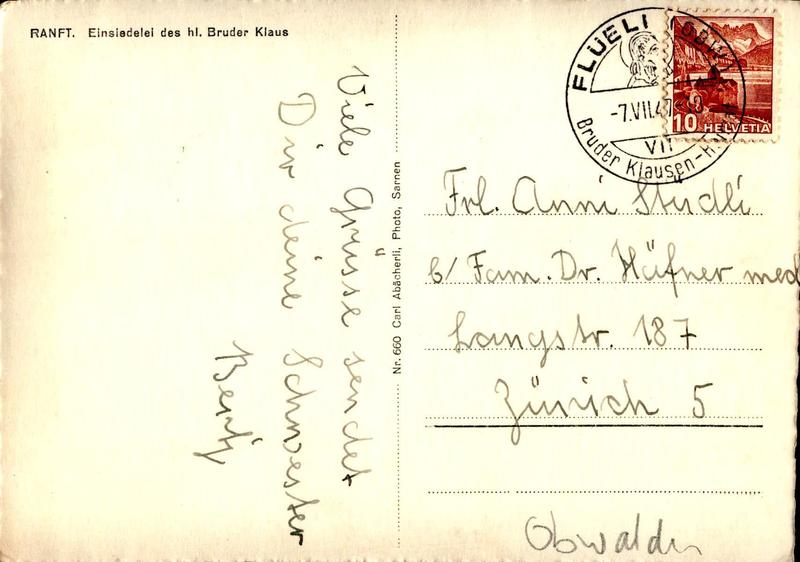 RANFT. Einsiedelei des hl. Bruder Klaus
Viele Grüsse sendet
Dir deine Schwester
Nr. 660 Carl Abächerli, Photo, Sarnen
FLÜELI
OBW.
-7.VII.47
VII
Bruder Klausen-
10 HELVETIA
Frl. Anni Studli
b/ Fam. Dr. Häfner med
Langstr. 187
Zürich 5
Obwalden